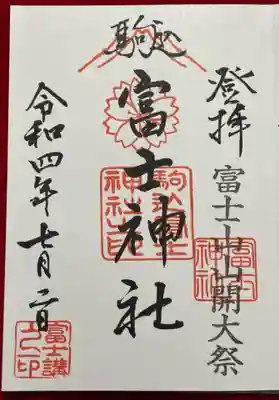 登拝
富士山山開大祭
富士神社
駒込
富士神社
駒込富士神社之印
令和四年七月二日
富士講之印